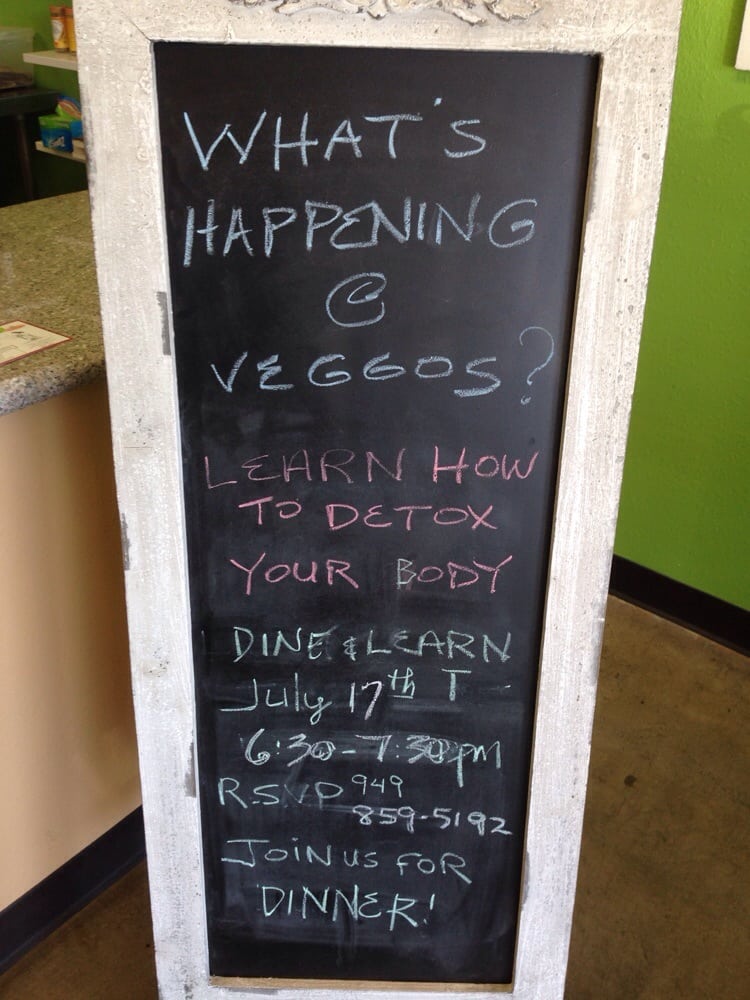 WHAT'S
HAPPENING
@
VEGGOS?
LEARN HOW
TO DETOX
YOUR BODY
DINE & LEARN
July 17th T
6:30-7:30pm
RSVP 949
859-5192
JOIN US FOR
DINNER!